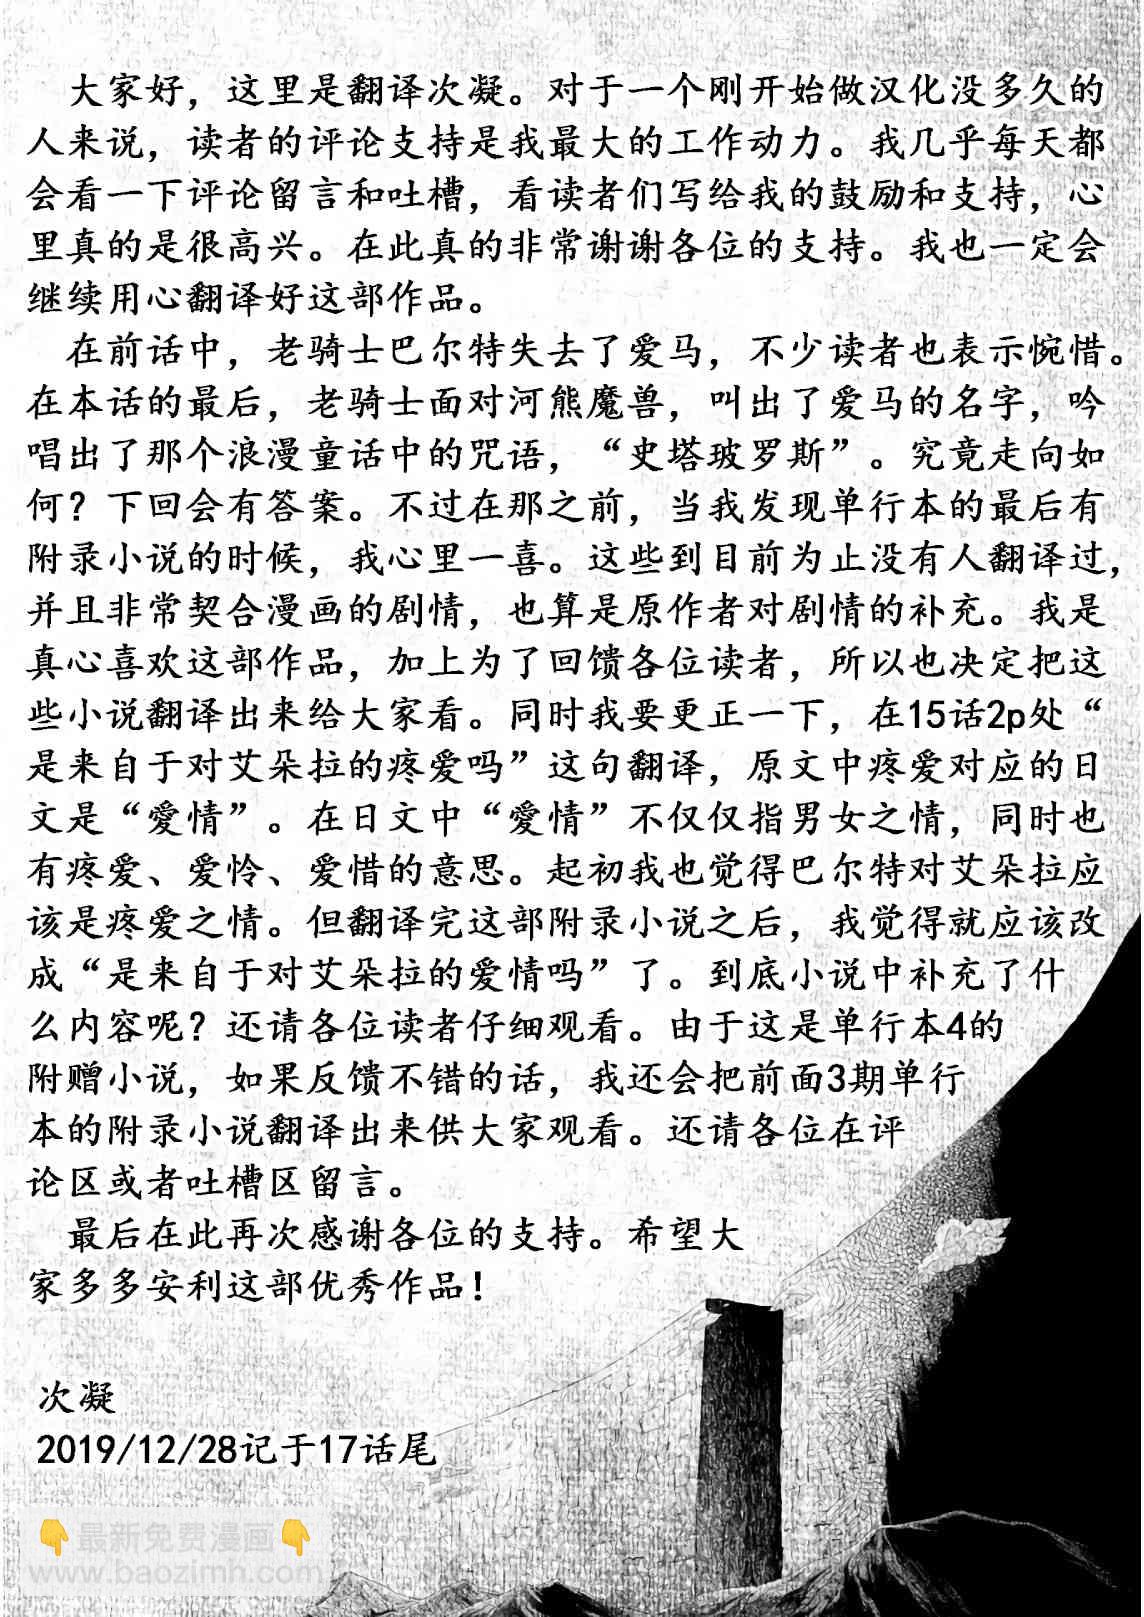 大家好，这里是翻译次凝。对于一个刚开始做汉化没多久的
人来说，读者的评论支持是我最大的工作动力。我几乎每天都
会看一下评论留言和吐槽，看读者们写给我的鼓励和支持，心
里真的是很高兴。在此真的非常谢谢各位的支持。我也一定会
继续用心翻译好这部作品。
在前话中，老骑士巴尔特失去了爱马，不少读者也表示惋惜。
在本话的最后，老骑士面对河熊魔兽，叫出了爱马的名字，吟
唱出了那个浪漫童话中的咒语，“史塔玻罗斯”。究竟走向如
何？下回会有答案。不过在那之前，当我发现单行本的最后有
附录小说的时候，我心里一喜。这些到目前为止没有人翻译过，
并且非常契合漫画的剧情，也算是原作者对剧情的补充。我是
真心喜欢这部作品，加上为了回馈各位读者，所以也决定把这
些小说翻译出来给大家看。同时我要更正一下，在15话2p处“
是来自于对艾朵拉的疼爱吗”这句翻译，原文中疼爱对应的日
文是“愛情”。在日文中“愛情”不仅仅指男女之情，同时也
有疼爱、爱怜、爱惜的意思。起初我也觉得巴尔特对艾朵拉应
该是疼爱之情。但翻译完这部附录小说之后，我觉得就应该改
成“是来自于对艾朵拉的爱情吗”了。到底小说中补充了什
么内容呢？还请各位读者仔细观看。由于这是单行本4的
附赠小说，如果反馈不错的话，我还会把前面3期单行
本的附录小说翻译出来供大家观看。还请各位在评
论区或者吐槽区留言。
最后在此再次感谢各位的支持。希望大
家多多安利这部优秀作品！
次凝
2019/12/28记于17话尾
👇最新免费漫画👇
www.baozimh.com